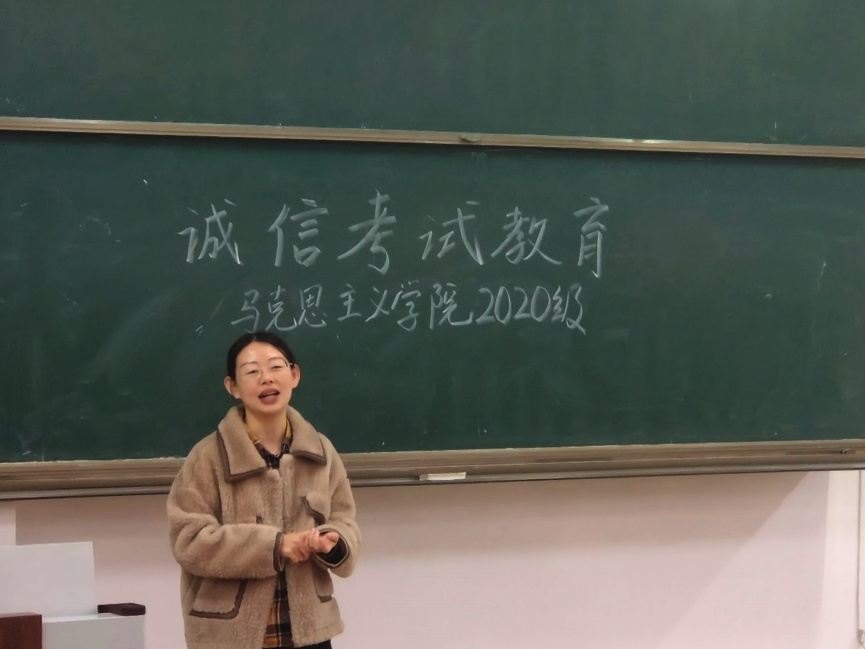 诚信考试教育
马克思主义学院2020级